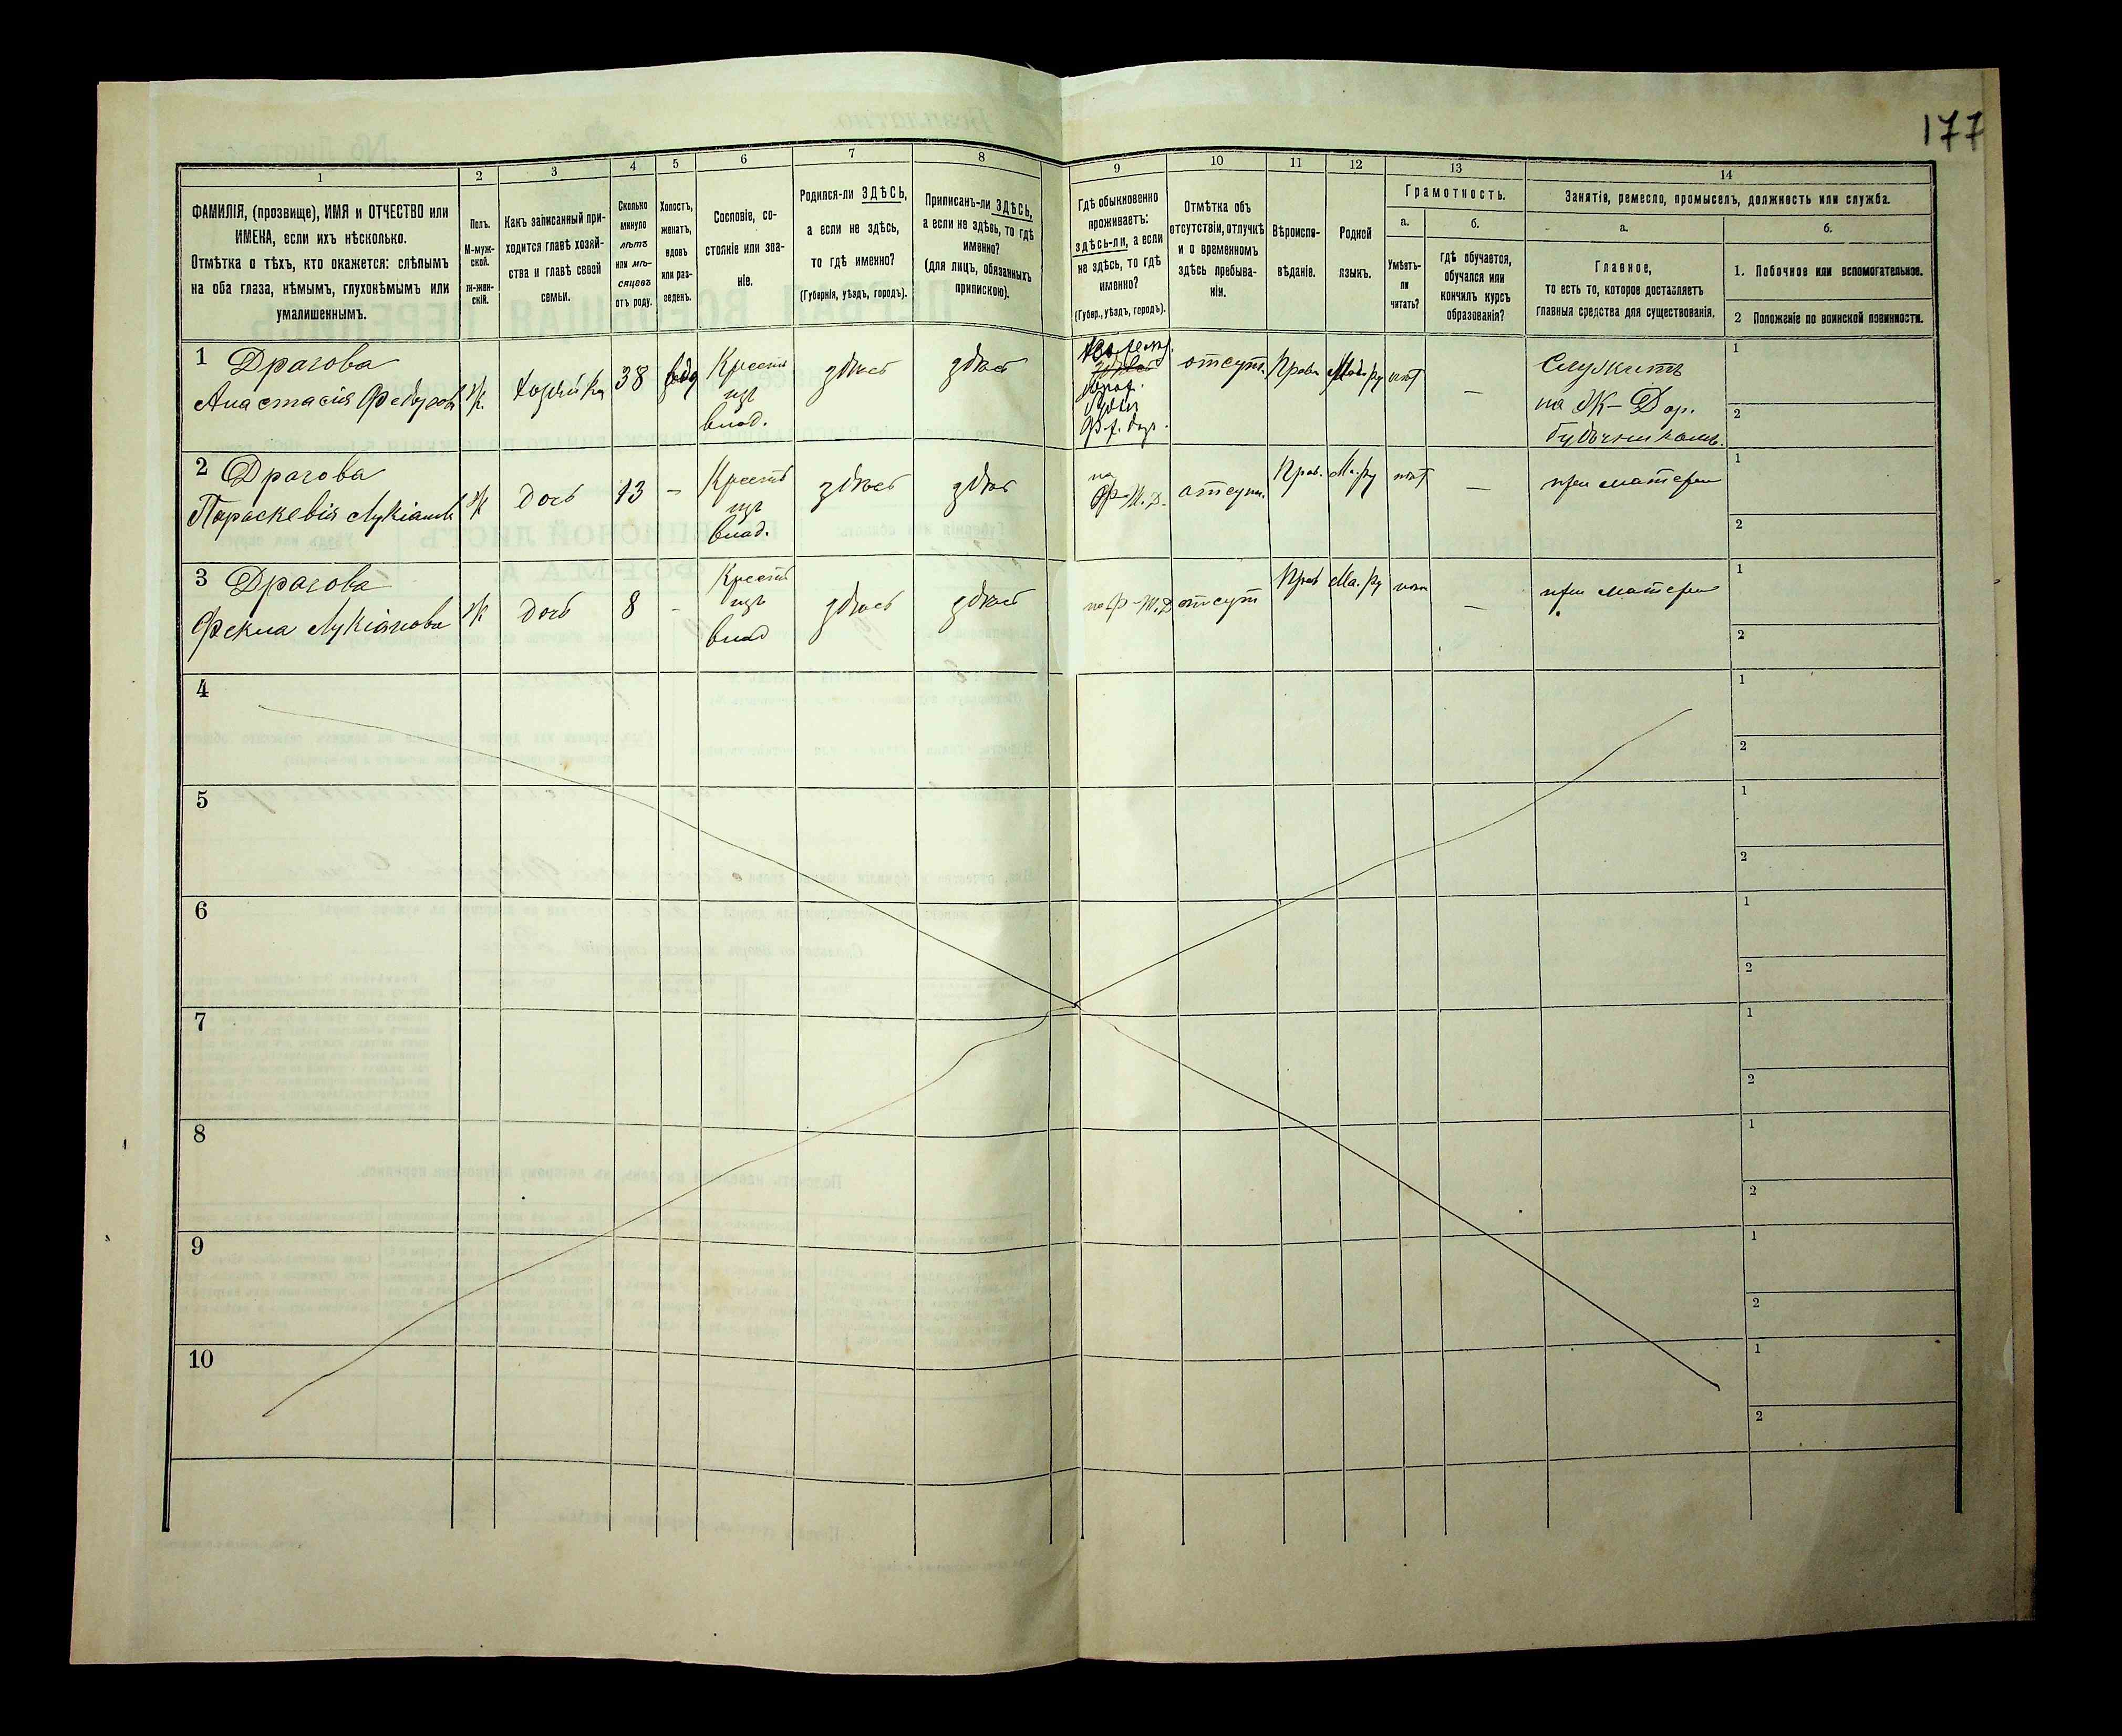 177
1
ФАМИЛІЯ, (прозвище), ИМЯ и ОТЧЕСТВО или
ИМЕНА, если ихъ нѣсколько.
Отмѣтка о тѣхъ, кто окажется: слѣпымъ
на оба глаза, нѣмымъ, глухонѣмымъ или
умалишеннымъ.
2
Полъ.
М-муж-
ской.
Ж-жен-
скій.
3
Какъ записанный при-
ходится главѣ хозяй-
ства и главѣ своей
семьи.
4
Сколько
минуло
лѣтъ
или мѣ-
сяцевъ
отъ роду.
5
Холостъ,
женатъ,
вдовъ
или раз-
веденъ.
6
Сословіе, со-
стояніе или зва-
ніе.
7
Родился-ли ЗДѢСЬ,
а если не здѣсь,
то гдѣ именно?
(Губернія, уѣздъ, городъ).
8
Приписанъ-ли ЗДѢСЬ,
а если не здѣсь, то гдѣ
именно?
(для лицъ, обязанныхъ
припискою).
9
Гдѣ обыкновенно
проживаетъ:
здѣсь-ли, а если
не здѣсь, то гдѣ
именно?
(Губер., уѣздъ, городъ).
10
Отмѣтка объ
отсутствіи, отлучкѣ
и о временномъ
здѣсь пребыва-
ніи.
11
Вѣроиспо-
вѣданіе.
12
Родной
языкъ.
13
Грамотность.
а.
Умѣетъ-
ли
читать?
б.
гдѣ обучается,
обучался или
кончилъ курсъ
образованія?
14
Занятія, ремесло, промыселъ, должность или служба.
а.
Главное,
то есть то, которое доставляетъ
главныя средства для существованія.
б.
1. Побочное или вспомогательное.
2 Положеніе по воинской повинности.
1 Драгова
Анастасія Федоров
Ж.
хозяйка
38
вдова
Крестъ
изъ
влад.
здѣсь
здѣсь
отсут.
Прав
Мало.ру
нѣт
—
Служитъ
на Ж-Дор.
будочникомъ.
1
2
2 Драгова
Параскевія Лукіанов
Ж
дочь
13
—
Крестъ
изъ
влад.
здѣсь
здѣсь
на
Ф-Ж.Д.
отсут.
Прав.
Ма.ру
нѣт
—
при матери
1
2
3 Драгова
Фекла Лукіанова
Ж
дочь
8
-
Крестъ
изъ
влад
здѣсь
здѣсь
на Ф-Ж.Д
отсут
Прав
Ма.ру
нѣт
—
при матери
1
2
4
1
2
5
1
2
6
1
2
7
1
2
8
1
2
9
1
2
10
1
2